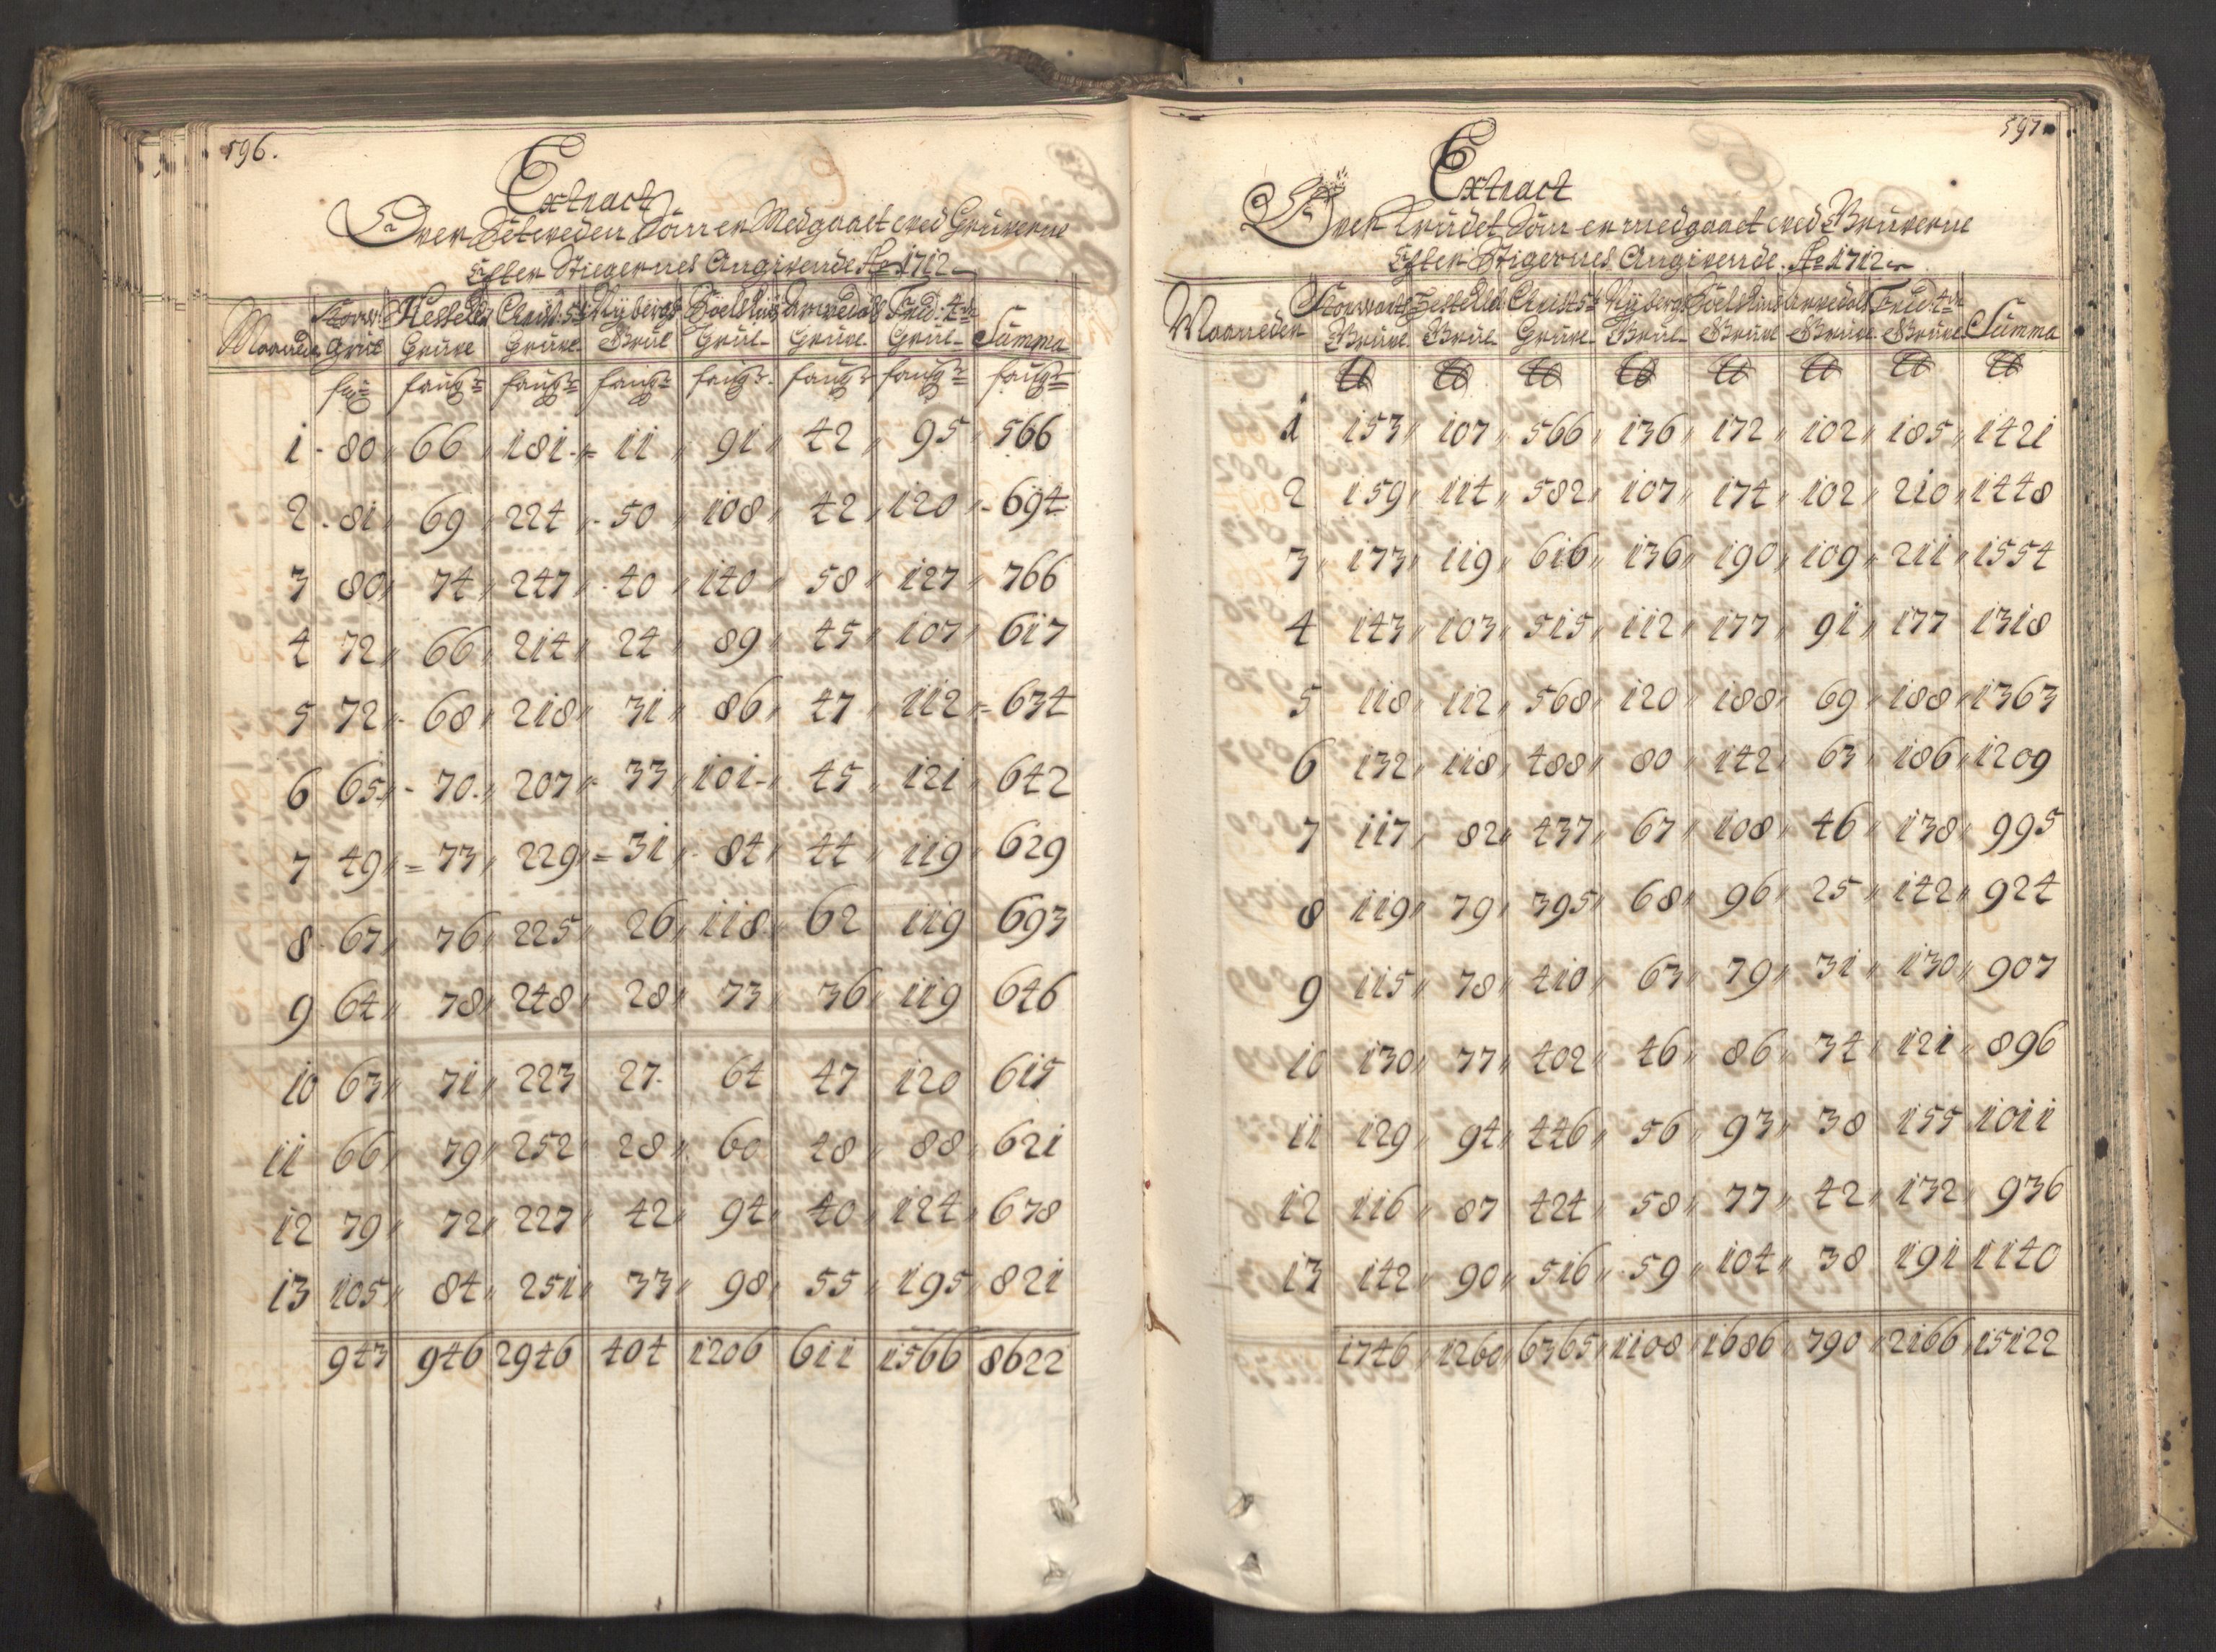 596.
Extract
Over Setveden Som er Medgaaet ved Gruverne
Efter Stiegernes Angivende Ao 1712
Maaneder Storw: Grue Hestekl: Gruve Christ: 5ti Gruve Nybergs Grue Grue Arvedals Gruve Fred: 4ti Grue Summa
faug: faug: faug: faug: faug: faug: faug:
1 80 66 181 11 91 42 95 566
2 81 69 224 50 108 42 120 694
3 80 74 247 40 140 58 127 766
4 72 66 214 24 89 45 107 617
5 72 68 218 31 86 47 112 634
6 65 70 207 33 101 45 121 642
7 49 73 229 31 84 44 119 629
8 67 76 225 26 118 62 119 693
9 64 78 248 28 73 36 119 646
10 63 71 223 27 64 47 120 615
11 66 79 252 28 60 48 88 621
12 79 72 227 42 94 40 124 678
13 105 84 251 33 98 55 195 821
943 946 2946 404 1206 611 1566 8622
597
Extract
Over Krudet Som er medgaaet ved Gruverne
Efter Stigernes Angivende Ao 1712
Maaneder Storwarts Gruve Grue Christ: 5ti Gruve Nybergs Grue Gruve Arvedals Gruve Fred: 4ti Gruve Summa
℔ ℔ ℔ ℔ ℔ ℔ ℔ ℔
1 153 107 566 136 172 102 185 1421
2 159 114 582 107 174 102 210 1448
3 173 119 616 136 190 109 211 1554
4 143 103 515 112 177 91 177 1318
5 118 112 568 120 188 69 188 1363
6 132 118 488 80 142 63 186 1209
7 117 82 437 67 108 46 138 995
8 119 79 395 68 96 25 142 924
9 115 78 410 63 79 31 130 907
10 130 77 402 46 86 34 121 896
11 129 94 446 56 93 38 155 1011
12 116 87 424 58 77 42 132 936
13 142 90 516 59 104 38 191 1140
1746 1260 6365 1108 1686 790 2166 15122